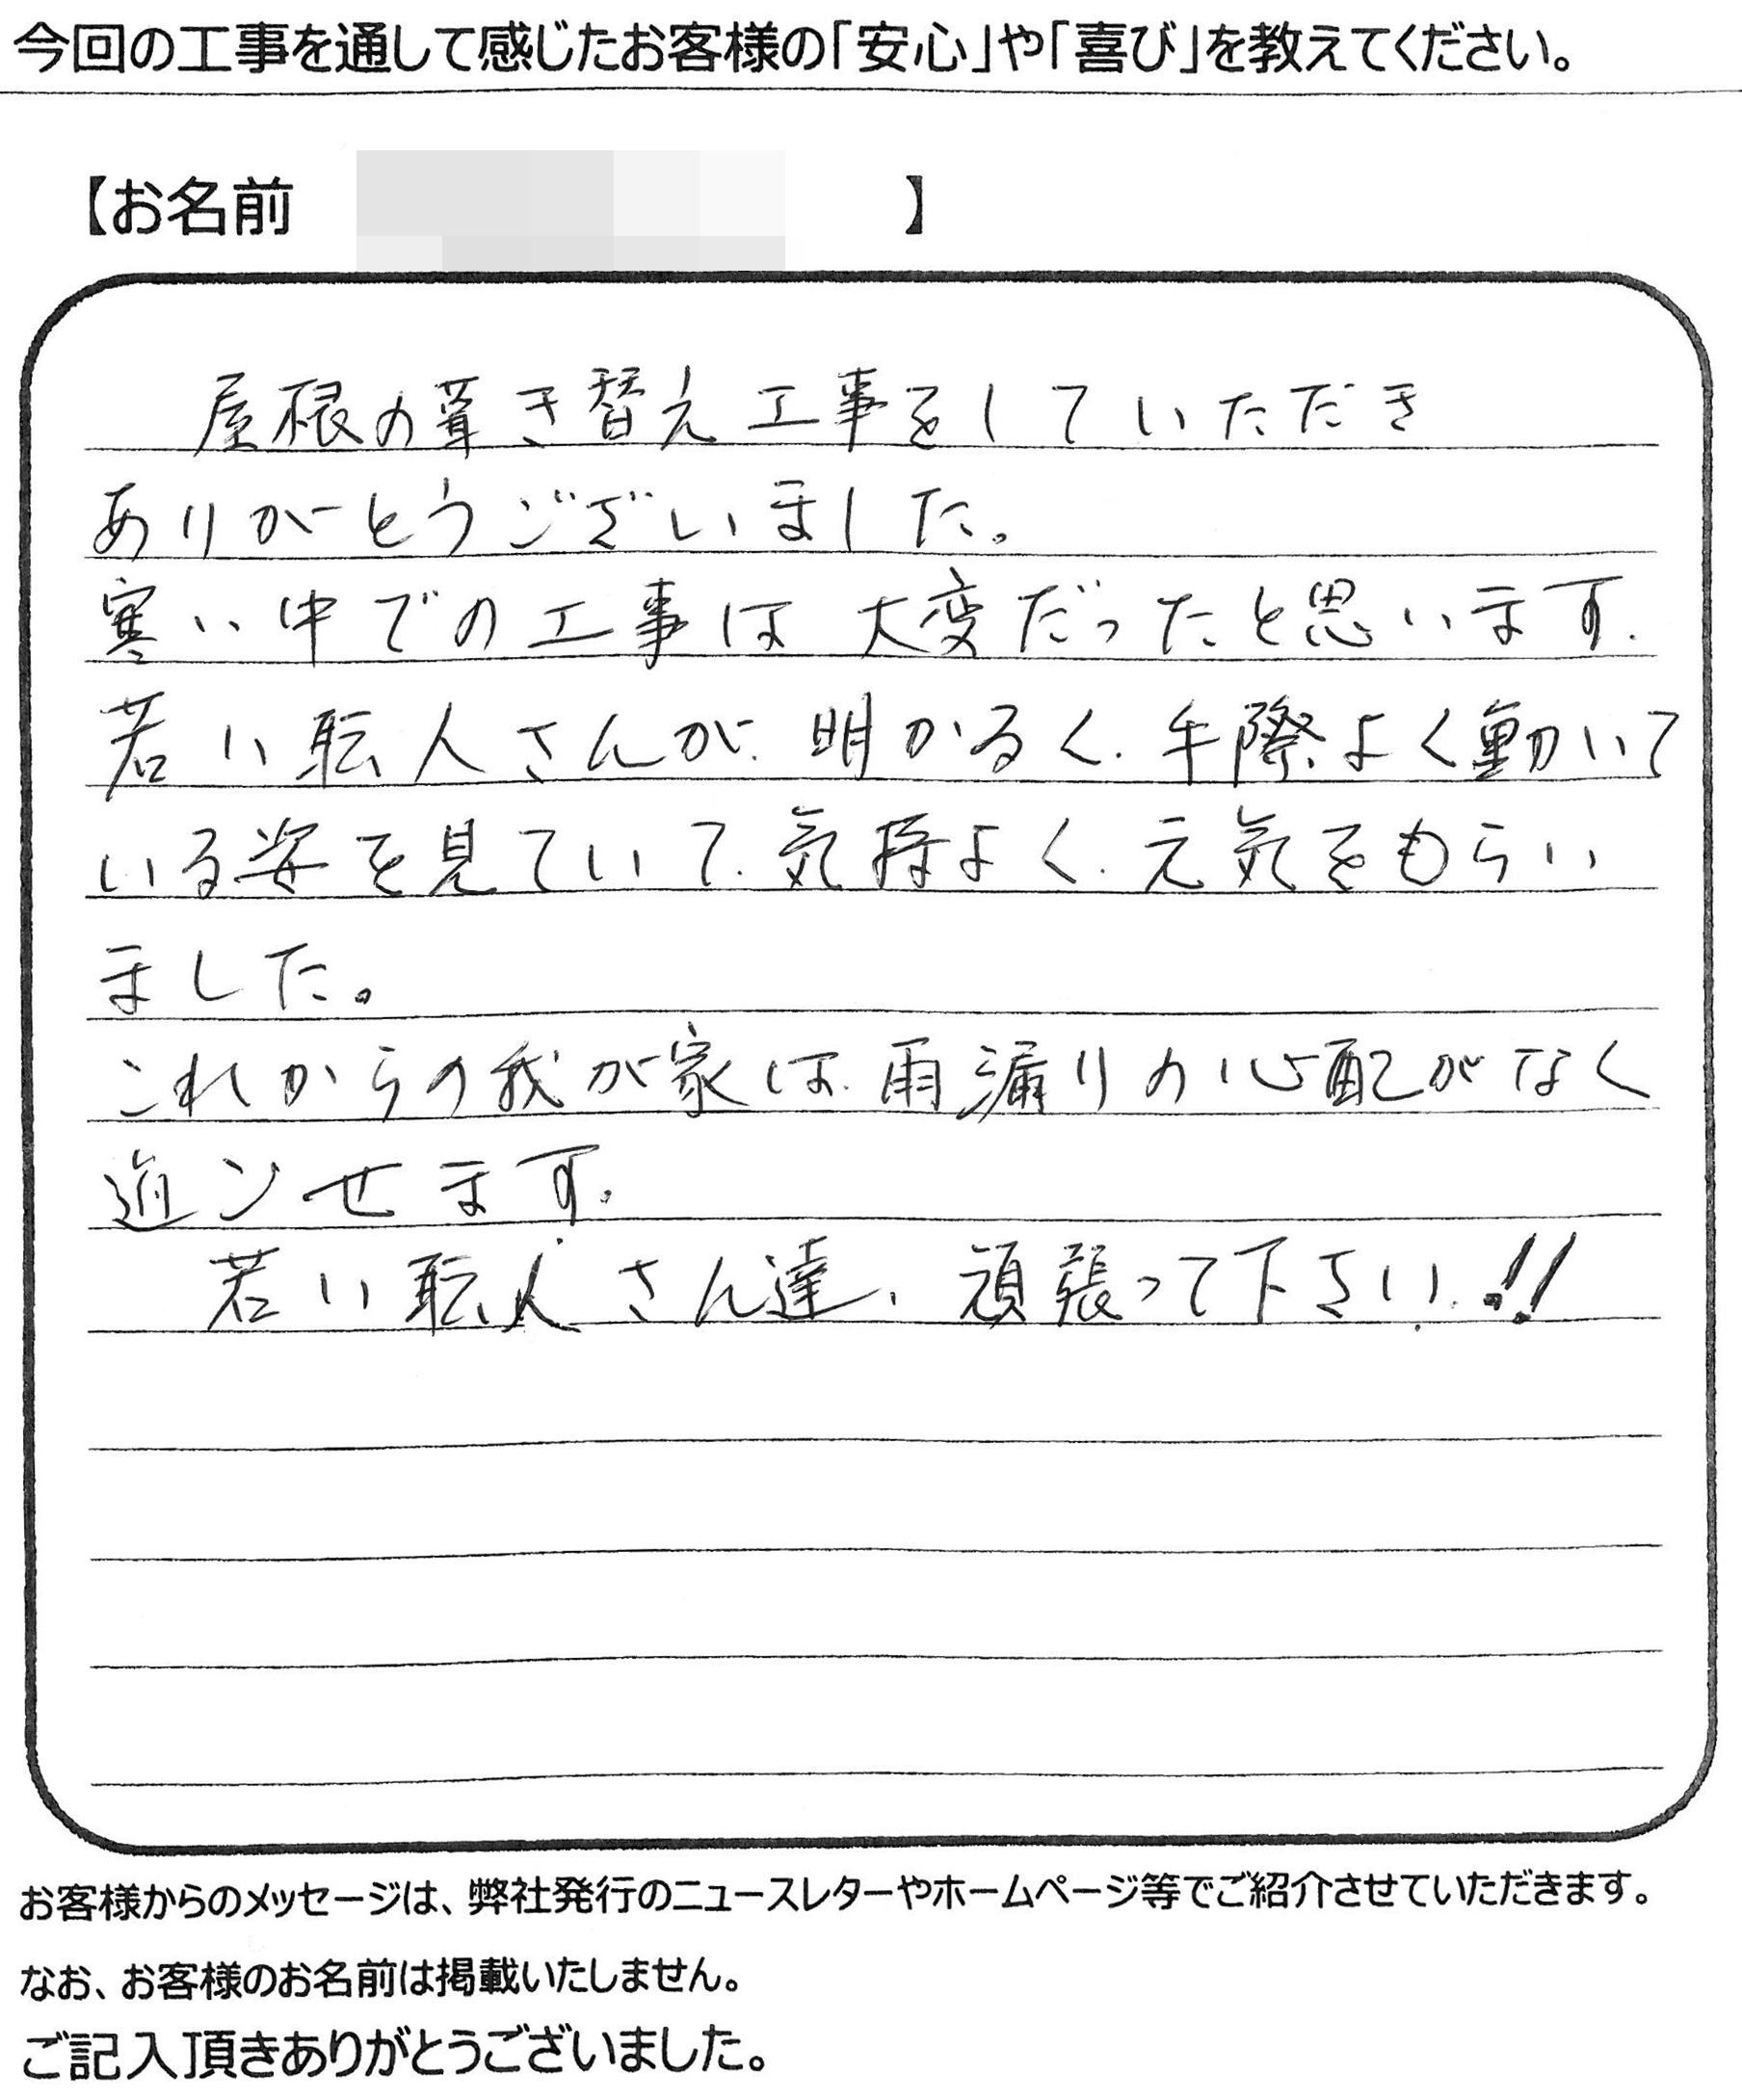 今回の工事を通して感じたお客様の「安心」や「喜び」を教えてください。
【お名前 】
屋根の葺き替え工事をしていただき
ありがとうございました。
寒い中での工事は大変だったと思います。
若い転人さんが、明かるく、手際よく動いて
いる姿を見ていて、気持よく、元気をもらい
ました。
これからの我が家は、雨漏りの心配がなく
過ごせます。
若い転人さん達、頑張って下さい!!
お客様からのメッセージは、弊社発行のニュースレターやホームページ等でご紹介させていただきます。
なお、お客様のお名前は掲載いたしません。
ご記入頂きありがとうございました。